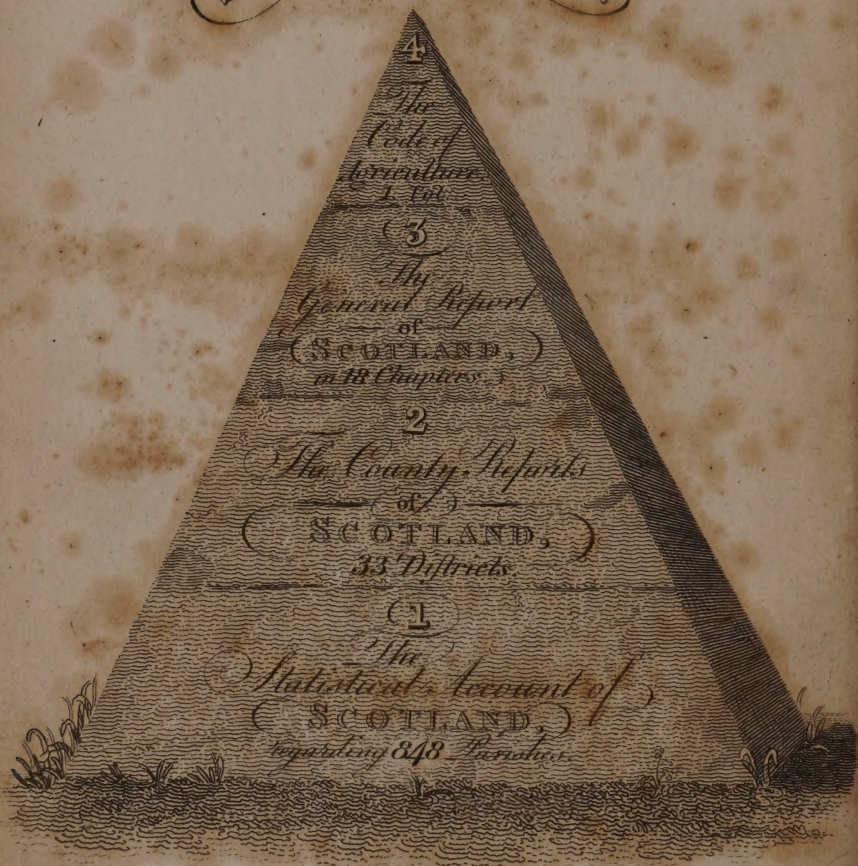 4
The
Code of
Agriculture
1 Vol
3
The
General Report
of
SCOTLAND,
in 18 Chapters.
2
The County Reports
of
SCOTLAND,
33 Districts.
1
The
Statistical Account of
SCOTLAND,
regarding 848 Parishes.